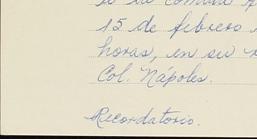 15 de febrero
horas, en su
Col. Nápoles.
Recordatorio.